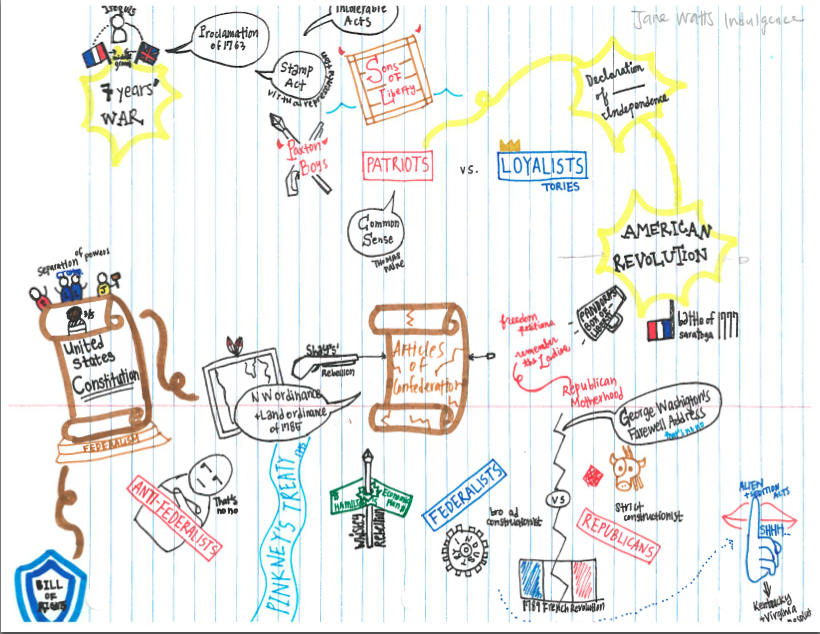 Jane Watts Indulgence
Iroquois
middle
ground
7 years'
WAR
Proclamation
of 1763
Intolerable
Acts
Stamp
Act
virtual representation
Sons
of
Liberty
Paxton
Boys
PATRIOTS
vs.
LOYALISTS
TORIES
Declaration
of
Independence
Common
Sense
THOMAS
PAINE
AMERICAN
REVOLUTION
PANDORA'S
BOX OF
battle of 1777
saratoga
freedom
petitions
remember
the Ladies
Republican
Motherhood
separation of powers
J
3/5
United
States
Constitution
FEDERALISM
Shays'
Rebellion
Articles
of
Confederation
NW ordinance
+Land ordinance
of 1785
George Washington's
Farewell Address
that's no no
ANTI-FEDERALISTS
That's
no no
PINKNEY'S TREATY
1795
HAMILTON
Economic
Plans
Whiskey
Rebellion
FEDERALISTS
broad
constructionist
INDUSTRY
VS
strict
constructionist
REPUBLICANS
1789 French Revolution
ALIEN
+ SEDITION ACTS
SHHH..
Kentucky
+ Virginia
BILL
OF
RIGHTS